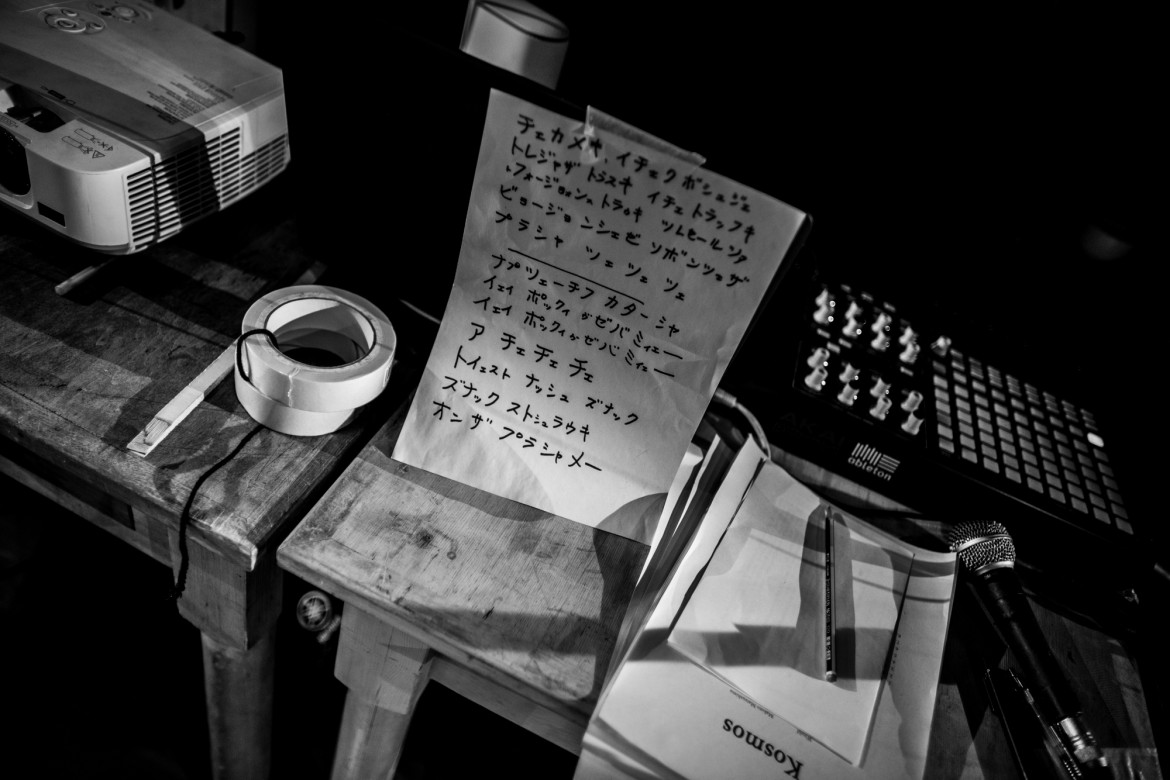 チェカメキ、イチェクボシェジェ
トレジャザ トラスキ イチェトラッフキ
ビョージョンシェゼ ソボンツェザ
プラシャ ツェ ツェ ツェ
ナプツェーチフ カターシャ
イェイ ポックィ ガゼバミィェー
イェイ ポックィ ガゼバミィェー
ア チェ チェ チェ
トイェスト ナッシュ ズナック
ズナック ストシュラウキ
オン ザ プラシャメー
ableton
Kosmos